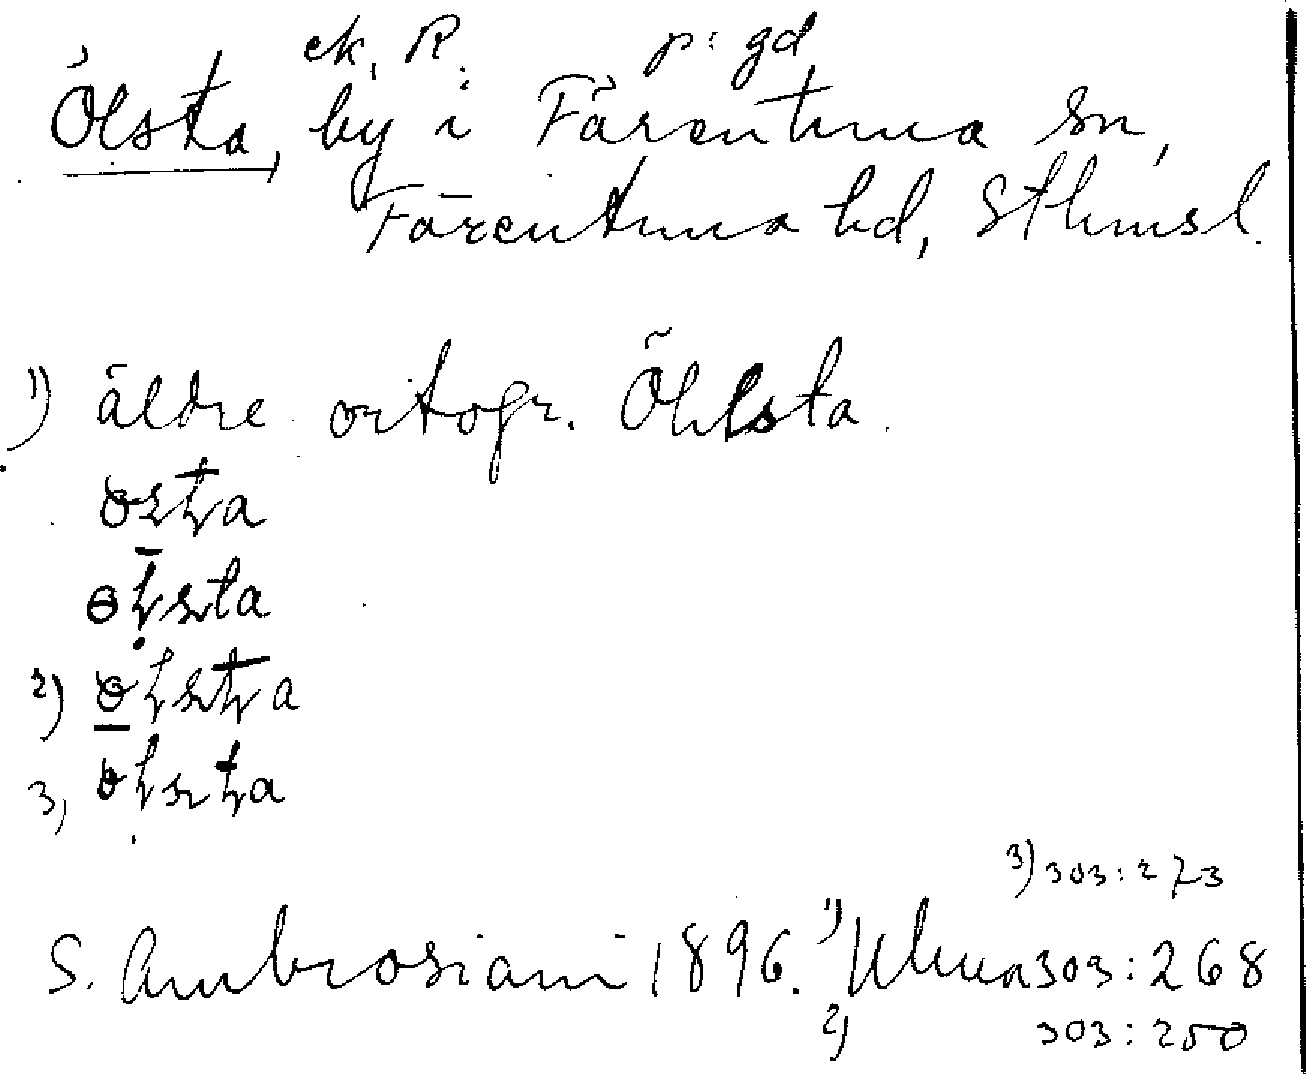 ek, R. p: gd
Ölsta, by i Färentuna sn,
Färentuna hd, Sthmsl.
1) äldre ortogr. Öhlsta.
2)
3,
3) 303:273
S. Ambrosiani 1896. 1) Uhura 303:268
2) 303:250